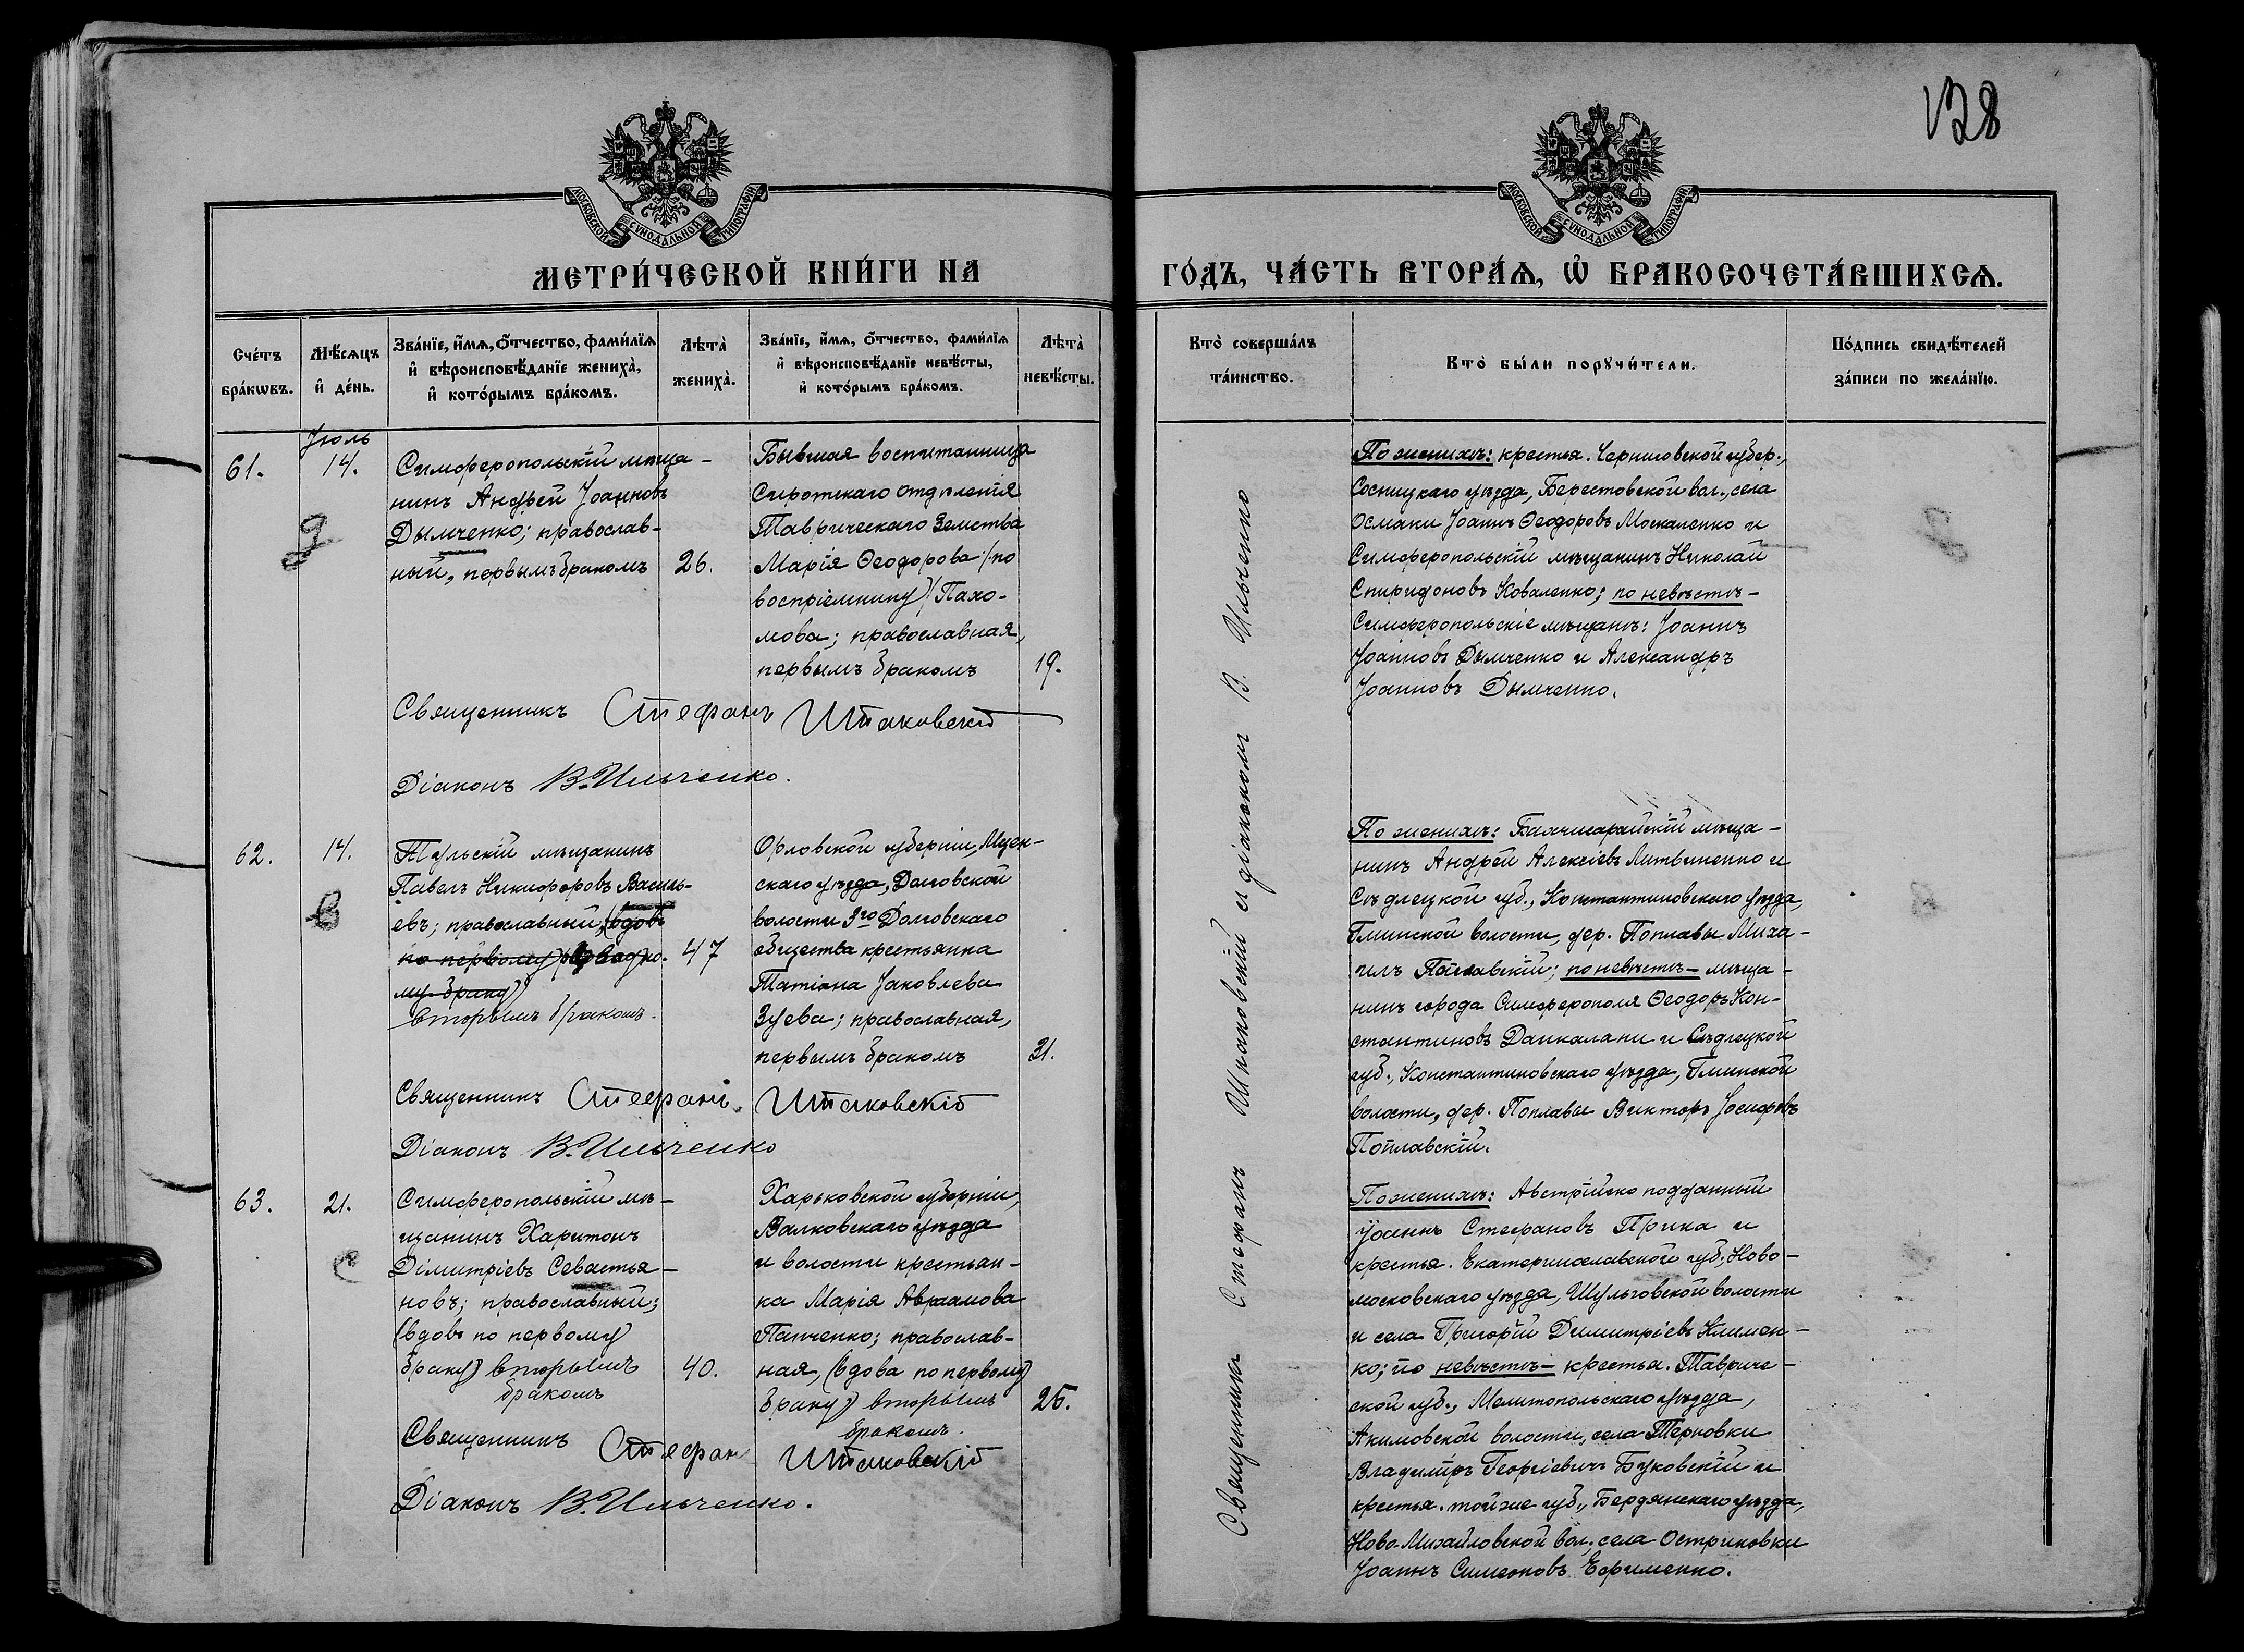 138
МОСКОВСКОЙ СѴНОДАЛЬНОЙ ТИПОГРАФІИ
МОСКОВСКОЙ СѴНОДАЛЬНОЙ ТИПОГРАФІИ
МЕТРИ́ЧЕСКОЙ КНИ́ГИ НА
ГО́ДЪ, ЧА́СТЬ ВТОРА́Ѧ, Ѡ҆ БРАКОСОЧЕТА́ВШИХСѦ.
Сче́тъ
бра́кѡвъ.
Мѣ́сѧцъ
и҆ де́нь.
Зва́нїе, и҆́мѧ, ѻ҆́тчество, фами́лїѧ
и҆ вѣроисповѣ́данїе жениха̀,
и҆ кото́рымъ бра́комъ.
Лѣта̀
жениха̀.
Зва́нїе, и҆́мѧ, ѻ҆́тчество, фами́лїѧ
и҆ вѣроисповѣ́данїе невѣ́сты,
и҆ кото́рымъ бра́комъ.
Лѣта̀
невѣ́сты.
Кто̀ соверша́лъ
та́инство.
Кто̀ бы́ли порꙋчи́тели.
По́дпись свидѣ́телей
за́писи по жела́нїю.
Іюль
61.
14.
Симферопольскій мѣща-
нинъ Андрей Іоанновъ
Дымченко; православ-
ный, первымъ бракомъ
26.
Бывшая воспитанница
Сиротскаго отдѣленія
Таврическаго Земства
Марія Ѳеодорова (по
воспріемнику) Пахо-
мова; православная,
первымъ бракомъ
19.
Священникъ Стефанъ Шпаковскій
Діаконъ В. Ильченко.
По женихѣ: крестья. Черниговской губер.,
Сосницкаго уѣзда, Берестовской вол., села
Осмаки Іоаннъ Ѳеодоровъ Москаленко и
Симферопольскій мѣщанинъ Николай
Спиридоновъ Коваленко; по невѣстѣ-
Симферопольскіе мѣщане: Іоаннъ
Іоанновъ Дымченко и Александръ
Іоанновъ Дымченко.
62.
14.
Тульскій мѣщанинъ
Павелъ Никифоровъ Василь-
евъ; православный, (вдовъ
по первому
му браку)
вторымъ бракомъ.
47
Орловской губерніи, Мцен-
скаго уѣзда, Долговской
волости 3го Долговскаго
общества крестьянка
Татіана Іаковлева
Зуева; православная,
первымъ бракомъ
31.
Священникъ Стефанъ Шпаковскій
Діаконъ В. Ильченко
По женихѣ: Бахчисарайскій мѣща-
нинъ Андрей Алексіевъ Литвиненко и
Сѣдлецкой губ., Константиновскаго уѣзда,
Глинской волости, дер. Поплавы Миха-
илъ Поплавскій; по невѣстѣ- мѣща-
нинъ города Симферополя Ѳеодоръ Кон-
стантиновъ Даикалаки и Сѣдлецкой
губ., Константиновскаго уѣзда, Глинской
волости, дер. Поплавы Викторъ Іосифовъ
Поплавскій.
63.
21.
Симферопольскій мѣ-
щанинъ Харитонъ
Димитріевъ Севастья-
новъ; православный;
(вдовъ по первому
браку) вторымъ
бракомъ
40.
Харьковской губерніи,
Валковскаго уѣзда
и волости крестьян-
ка Марія Авраамова
Панченко; православ-
ная, (вдова по первому
браку) вторымъ
бракомъ.
25.
Священникъ Стефан Шпаковскій
Діаконъ В. Ильченко.
По женихѣ: Австрійско подданный
Іоаннъ Стефановъ Прика и
крестья. Екатеринославской губ., Ново-
московскаго уѣзда, Шульговской волости
и села Григорій Димитріевъ Климен-
ко; по невѣстѣ- крестья. Тавриче-
ской губ., Мелитопольскаго уѣзда,
Акимовской волости, села Терновки
Владиміръ Георгіевичъ Буковскій и
крестья. той же губ., Бердянскаго уѣзда,
Ново-Михайловской вол., села Остриковки
Іоаннъ Симеоновъ Ефименко.
Священникъ Стефанъ Шпаковскій и діаконъ В. Ильченко